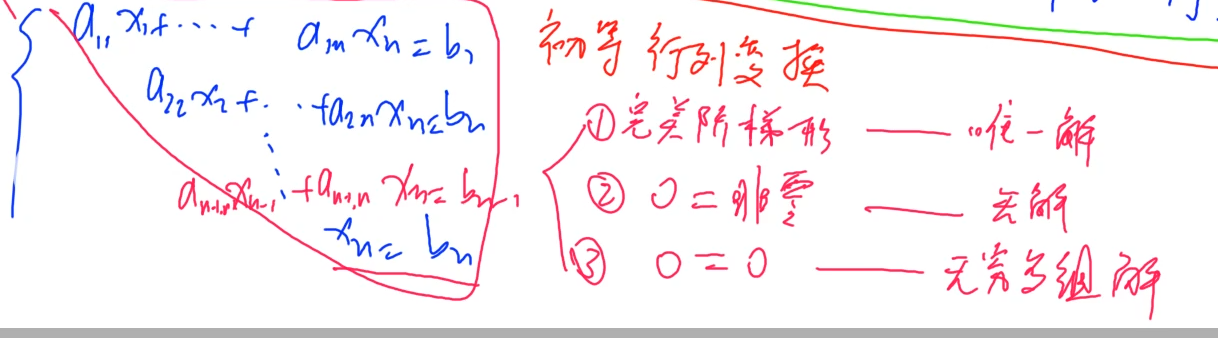 a₁₁x₁+⋯+a₁ₙxₙ=b₁
a₂₂x₂+⋯+a₂ₙxₙ=bₙ
aₙ₋₁,ₙxₙ₋₁+aₙ₋₁,ₙxₙ=bₙ₋₁
xₙ=bₙ
初等行列变换
①完美阶梯形——唯一解
②0=非零——无解
③0=0——无穷多组解